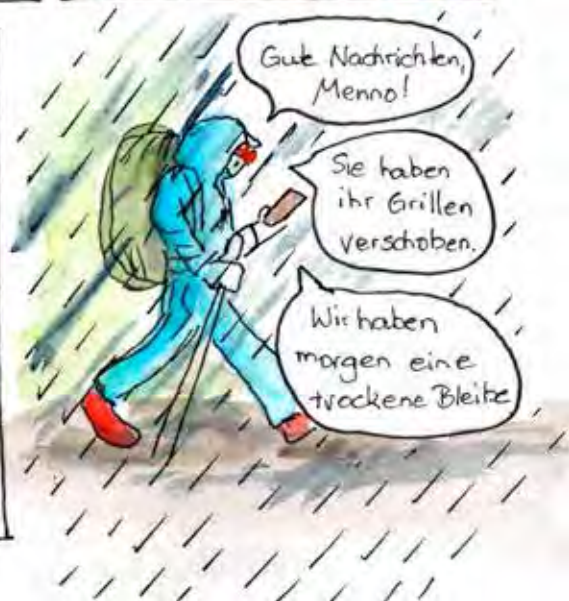 Gute Nachrichten,
Menno!
Sie haben
ihr Grillen
verschoben.
Wir haben
morgen eine
trockene Bleibe